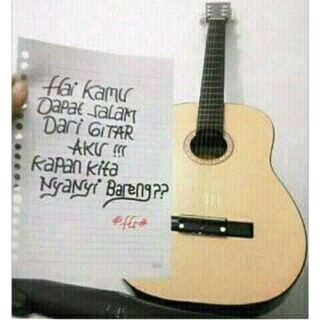 Hai Kamu
Dapat Salam
Dari GITAR
AKU !!!
Kapan Kita
Nyanyi Bareng??